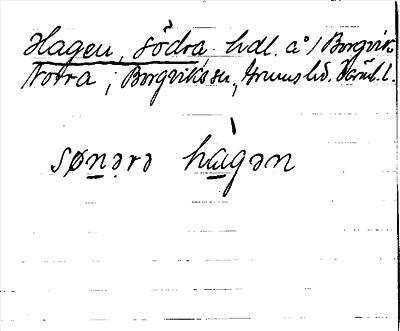 Hagen, södra hdl. a° / Borgvik
Norra; Borgviks sn, Grums hd. Värml. l.
sønərə hagən